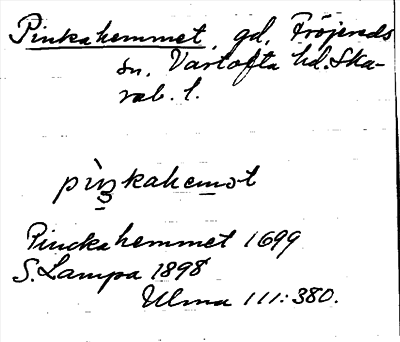 Pinkahemmet, gd, Fröjereds
sn. Vartofta hd. Ska-
rab. l.
pìŋkahemət
Pinckahemmet 1699
S. Lampa 1898
Ulma 111:380.